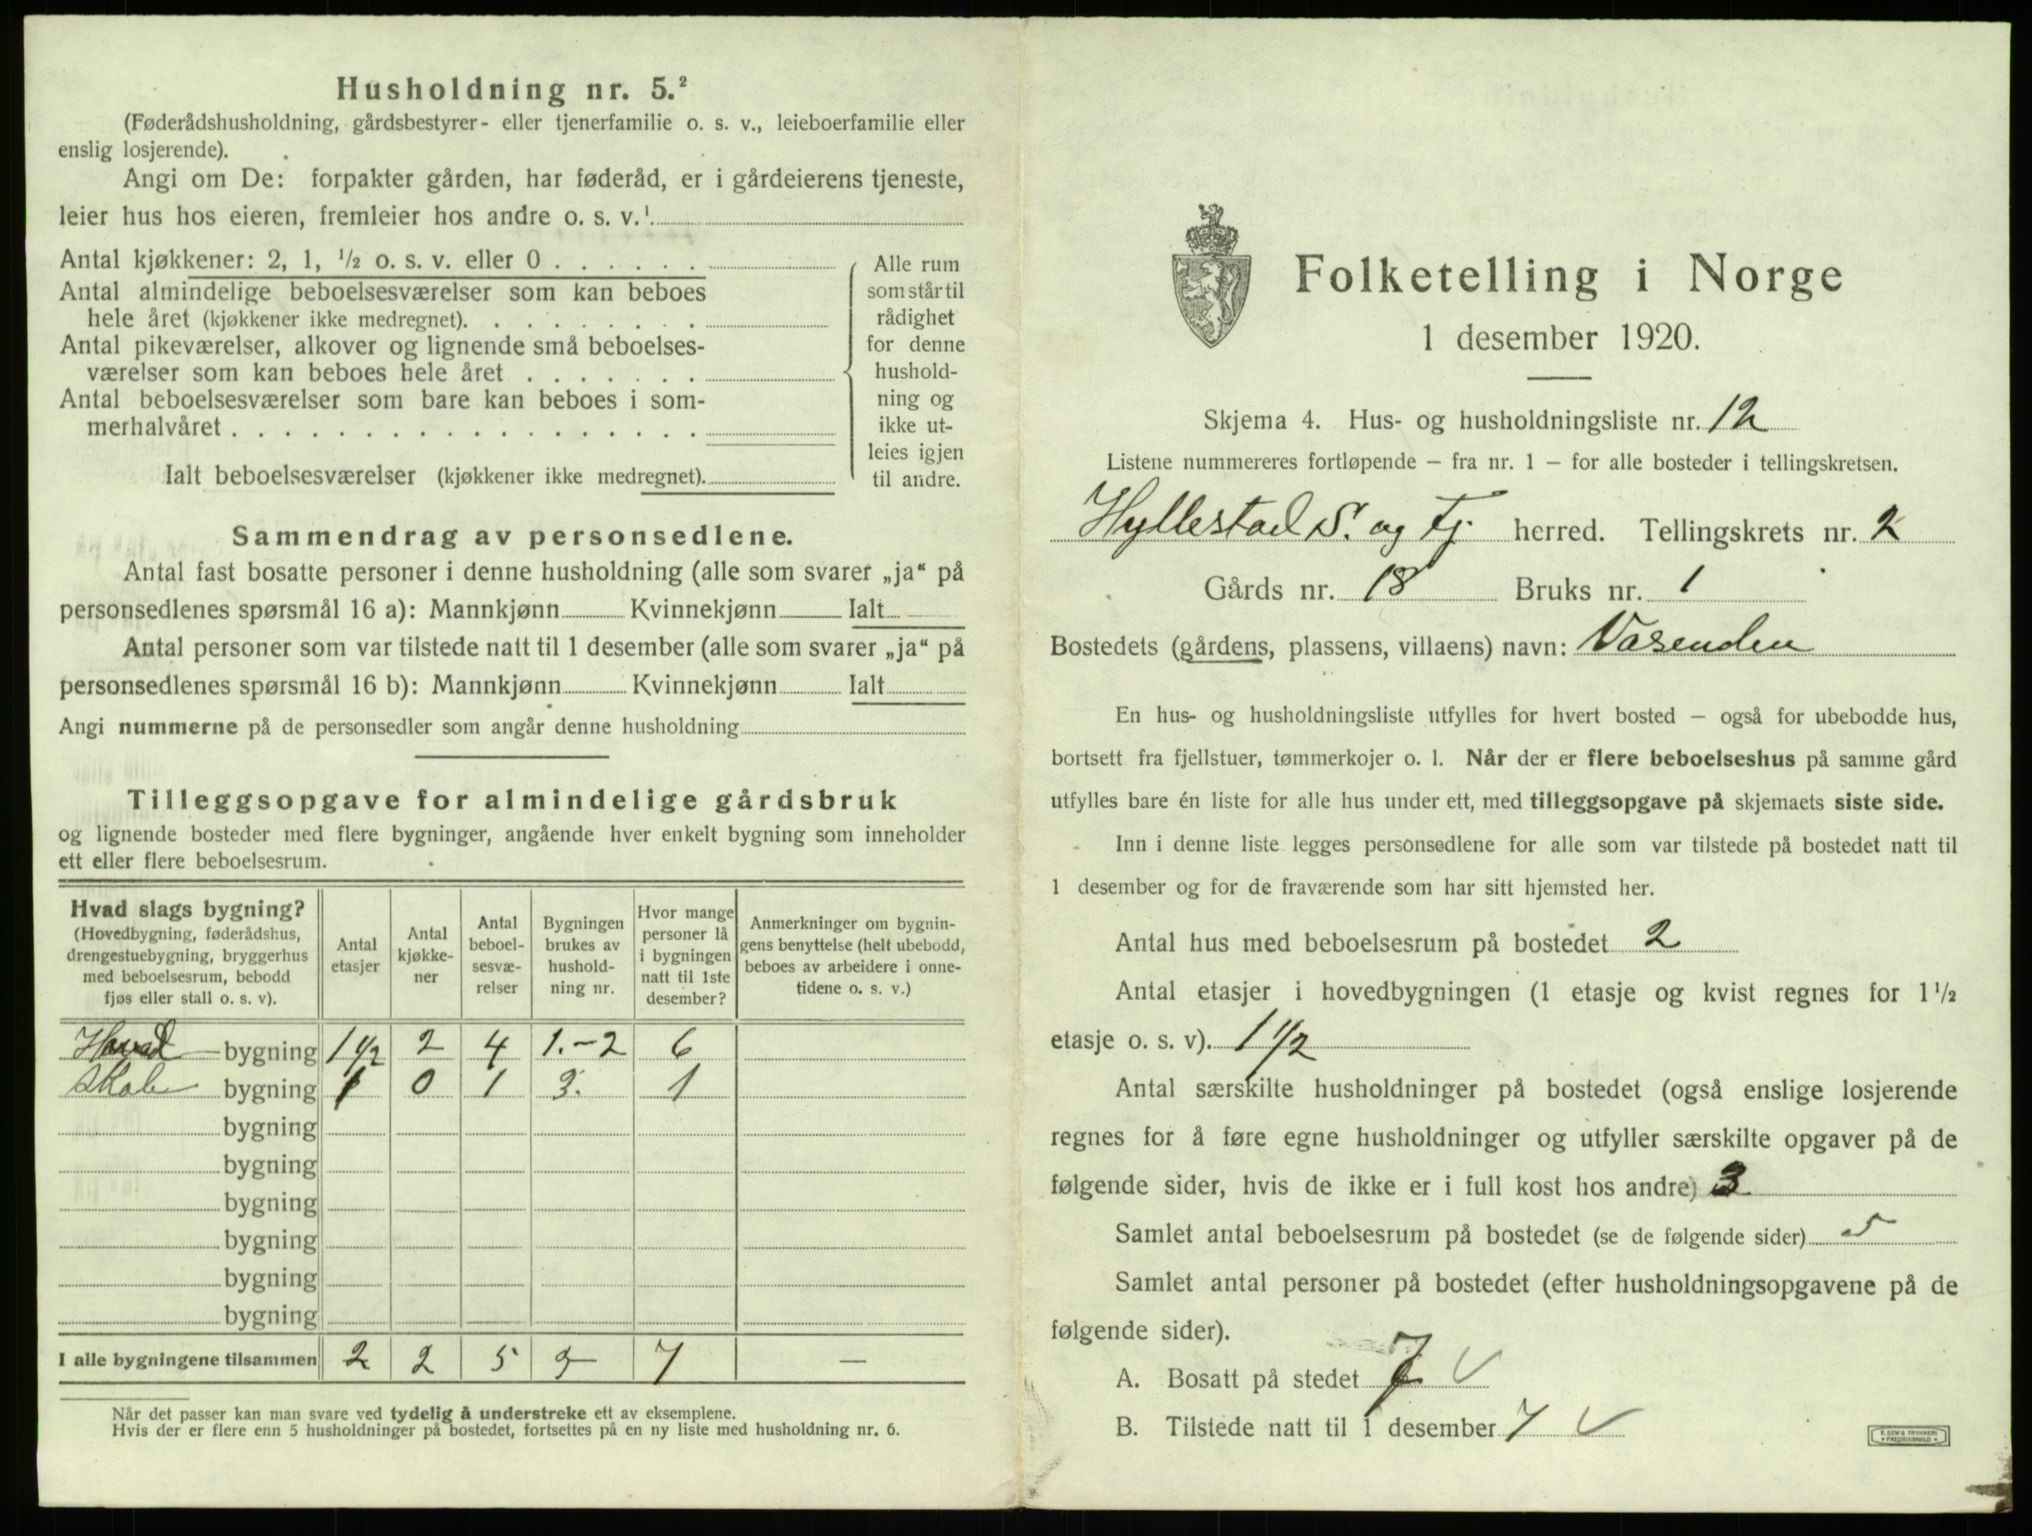 Husholdning nr. 5.²
(Føderådshusholdning, gårdsbestyrer- eller tjenerfamilie o. s. v., leieboerfamilie eller
enslig losjerende).
Angi om De: forpakter gården, har føderåd, er i gårdeierens tjeneste,
leier hus hos eieren, fremleier hos andre o. s. v.¹
Antal kjøkkener: 2, 1, ½ o. s. v. eller 0 . . . . . .
Antal almindelige beboelsesværelser som kan beboes
hele året (kjøkkener ikke medregnet). . . . . . . . .
Antal pikeværelser, alkover og lignende små beboelses-
værelser som kan beboes hele året . . . . . . .
Antal beboelsesværelser som bare kan beboes i som-
merhalvåret . . . . . . . . . . . . . . . . . .
Ialt beboelsesværelser (kjøkkener ikke medregnet).
Alle rum
som står til
rådighet
for denne
hushold-
ning og
ikke ut-
leies igjen
til andre.
Sammendrag av personsedlene.
Antal fast bosatte personer i denne husholdning (alle som svarer „ja“ på
personsedlenes spørsmål 16 a): Mannkjønn Kvinnekjønn Ialt
Antal personer som var tilstede natt til 1 desember (alle som svarer „ja“ på
personsedlenes spørsmål 16 b): Mannkjønn Kvinnekjønn Ialt
Angi nummerne på de personsedler som angår denne husholdning
Tilleggsopgave for almindelige gårdsbruk
og lignende bosteder med flere bygninger, angående hver enkelt bygning som inneholder
ett eller flere beboelsesrum.
Hvad slags bygning?
(Hovedbygning, føderådshus,
drengestuebygning, bryggerhus
med beboelsesrum, bebodd
fjøs eller stall o. s. v).
Antal
etasjer
Antal
kjøkke-
ner
Antal
beboel-
sesvæ-
relser
Bygningen
brukes av
hushold-
ning nr.
Hvor mange
personer lå
i bygningen
natt til 1ste
desember?
Anmerkninger om bygnin-
gens benyttelse (helt ubebodd,
beboes av arbeidere i onne-
tidene o. s. v.)
Hoved bygning 1 1/2 2 4 1.-2 6
bygning 1 0 1 3. 1
bygning
bygning
bygning
bygning
bygning
bygning
I alle bygningene tilsammen 2 2 5 3 7 —
Når det passer kan man svare ved tydelig å understreke ett av eksemplene.
Hvis der er flere enn 5 husholdninger på bostedet, fortsettes på en ny liste med husholdning nr. 6.
Folketelling i Norge
1 desember 1920.
Skjema 4. Hus- og husholdningsliste nr. 12
Listene nummereres fortløpende — fra nr. 1 — for alle bosteder i tellingskretsen.
Hyllestad S. og Fj. herred. Tellingskrets nr. 2
Gårds nr. 18 Bruks nr. 1
Bostedets (gårdens, plassens, villaens) navn: Vasenden
En hus- og husholdningsliste utfylles for hvert bosted — også for ubebodde hus,
bortsett fra fjellstuer, tømmerkojer o. l. Når der er flere beboelseshus på samme gård
utfylles bare én liste for alle hus under ett, med tilleggsopgave på skjemaets siste side.
Inn i denne liste legges personsedlene for alle som var tilstede på bostedet natt til
1 desember og for de fraværende som har sitt hjemsted her.
Antal hus med beboelsesrum på bostedet 2
Antal etasjer i hovedbygningen (1 etasje og kvist regnes for 1½
etasje o. s. v). 1 1/2
Antal særskilte husholdninger på bostedet (også enslige losjerende
regnes for å føre egne husholdninger og utfyller særskilte opgaver på de
følgende sider, hvis de ikke er i full kost hos andre) 3
Samlet antal beboelsesrum på bostedet (se de følgende sider) 5
Samlet antal personer på bostedet (efter husholdningsopgavene på de
følgende sider).
A. Bosatt på stedet 7 v
B. Tilstede natt til 1 desember 7 v
E. SEM'S TRYKKERI
FREDRIKSHALD